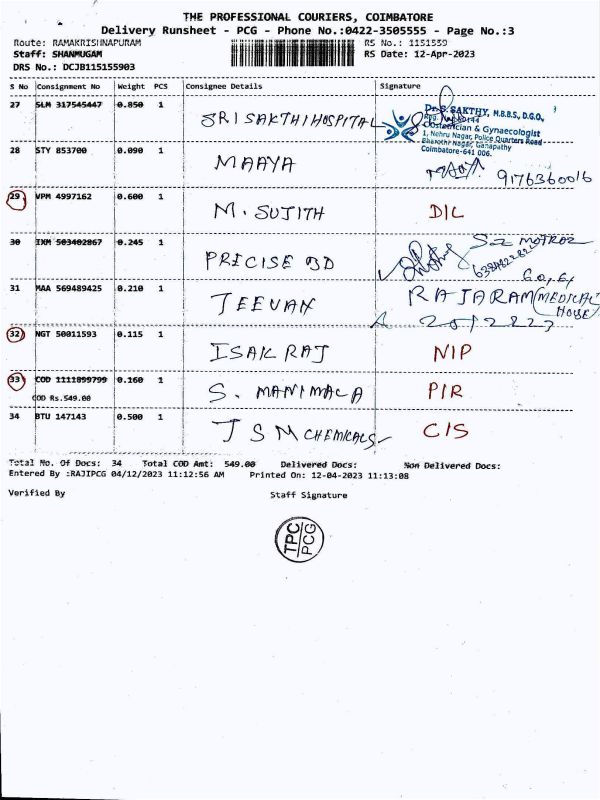 THE PROFESSIONAL COURIERS, COIMBATORE
Delivery Runsheet - PCG - Phone No.:0422-3505555 - Page No.:3
Route: RAMAKRISHNAPURAM
RS No.: 1151559
Staff: SHANMUGAM
RS Date: 12-Apr-2023
DRS No.: DCJB115155903
S No Consignment No Weight PCS Consignee Details Signature
27 SLM 317545447 0.850 1 SRI SAKTHI HOSPITAL
Dr. S. SAKTHY, M.B.B.S., D.G.O.,
Obstetrician & Gynaecologist
1, Nehru Nagar, Police Quarters Road
Bharathi Nagar, Ganapathy
Coimbatore-641 006.
28 STY 853700 0.090 1 MAAYA 9176360016
29 VPM 4997162 0.600 1 M. SUJITH DIL
30 IXM 503402867 0.245 1 PRECISE 3D
31 MAA 569489425 0.210 1 JEEVAN RAJARAM (MEDICAL
HOUSE)
32 NGT 50011593 0.115 1 ISAK RAJ NIP
33 COD 1111899799 0.160 1 S. MANIMALA PIR
COD Rs.549.00
34 BTU 147143 0.500 1 J S M CHEMICALS CIS
Total No. Of Docs: 34 Total COD Amt: 549.00 Delivered Docs: Non Delivered Docs:
Entered By :RAJIPCG 04/12/2023 11:12:56 AM Printed On: 12-04-2023 11:13:08
Verified By Staff Signature
TPC
PCG